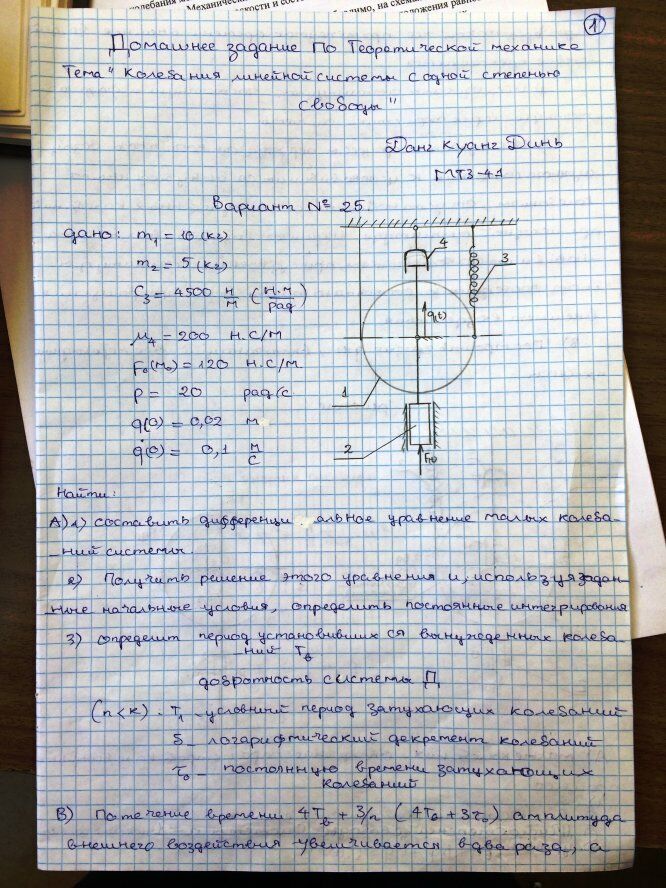 Механически
1
Домашнее задание по Теоретической механике
Тема "Колебания линейной системы с одной степенью
свободы"
Данг Куанг Динь
МТ3-41
Вариант № 25.
дано: m₁ = 10 (кг)
m₂ = 5 (кг)
C₃ = 4500 н/м (н.м/рад)
μ₄ = 200 н.с/м
F₀(м₀) = 120 н.с/м.
p = 20 рад/с.
q(0) = 0,02 м
q̇(0) = 0,1 м/с
4
3
q(t)
1
2
F(t)
Найти:
A) 1) составить дифференци альное уравнение малых колеба-
-ний системы.
2) Получить решение этого уравнения и, используя задан
-ные начальные условия, определить постоянные интегрирования
3) определит период установивших ся вынужденных колеба-
-ний Tв
добротность системы Д
(n<k). T₁ - условный период затухающих колебаний
δ - логарифмический декремент колебаний
τ₀ - постоянную времени затухающих
колебаний
B) По течение времени 4Tв + 3/n (4Tв + 3τ₀) амплитуда
внешнего воздействия увеличивается в два раза, а